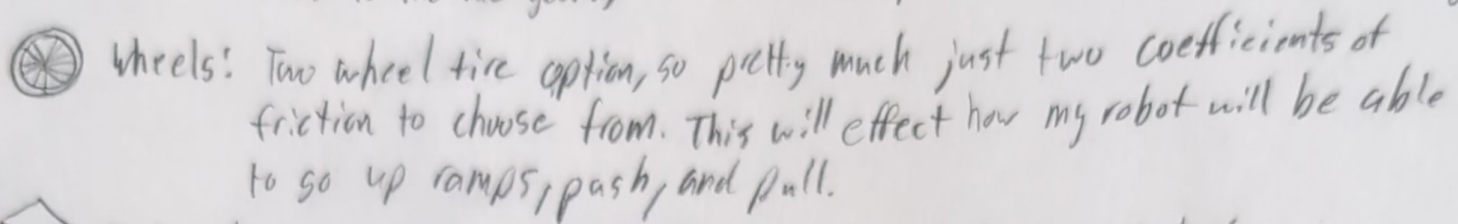 Wheels: Two wheel tire option, so pretty much just two coefficients of
friction to choose from. This will effect how my robot will be able
to go up ramps, push, and pull.